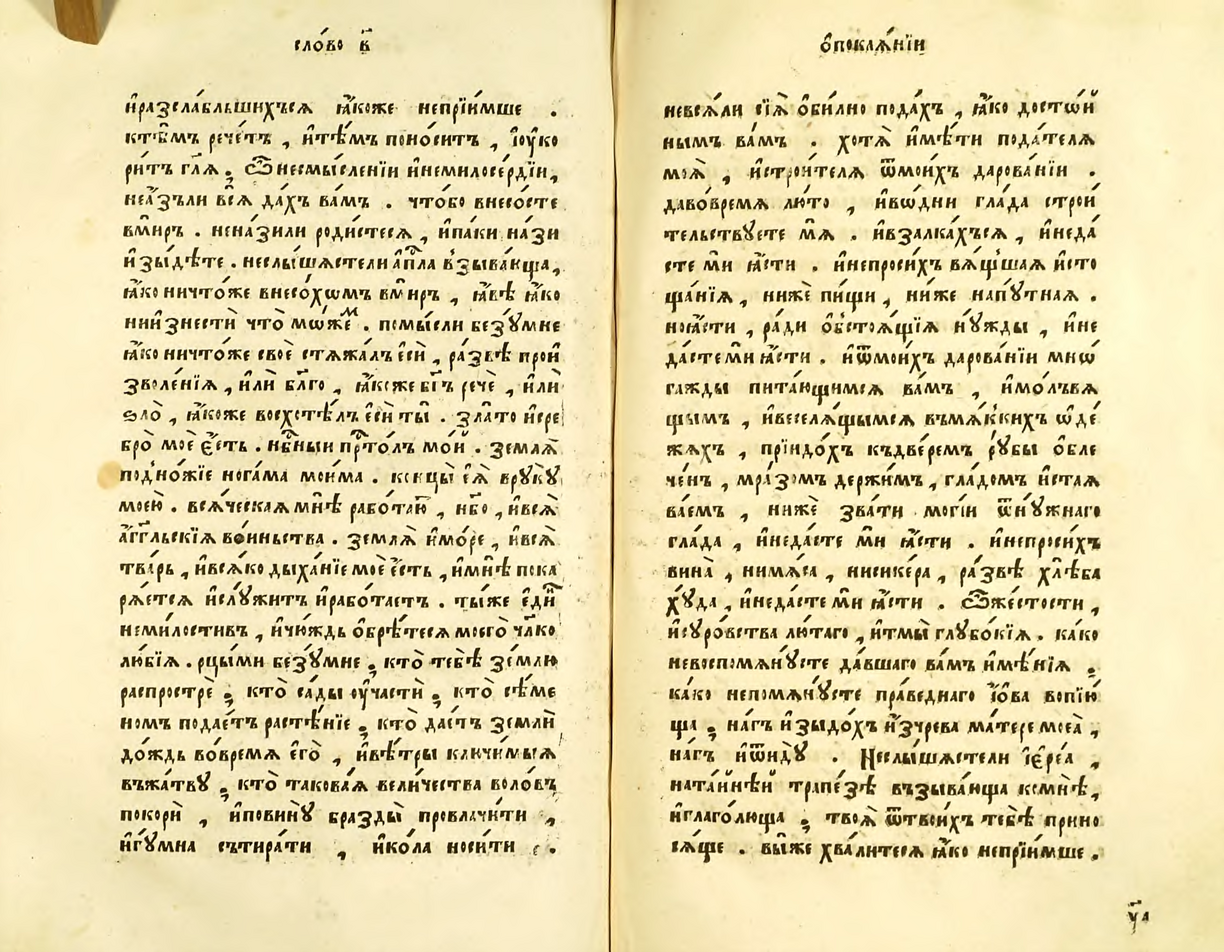 сло́во в҃
и҆разсла́бльшихъсѧ ꙗ҆́коже неприи҆́мше .
ктѣ́мъ рече́тъ , и҆тѣ́мъ поно́ситъ , і҆ѹ҆ко
ри́тъ гл҃ѧ . Ѽнесмы́сленїи и҆немилосе́рдїи,
неа҆́зъли всѧ̀ да́хъ ва́мъ . что́бо внесо́сте
вми́ръ . нена́зили роди́стесѧ , и҆па́ки на́зи
и҆зы́дѣте . неслы́шѧстели а҆пⷭ҇ла взыва́юща,
ꙗ҆́ко ничто́же внесо́хѡмъ вми́ръ , ꙗ҆́вѣ ꙗ҆́ко
нии҆знестѝ что̀ мѡ́жеⷨ . помы́сли безꙋ́мне
ꙗ҆́ко ничто́же своѐ стѧжа́лъ є҆сѝ , ра́звѣ прои҆
зволе́нїѧ , и҆лѝ бл҃го , ꙗ҆́коже бг҃ъ речѐ , и҆лѝ
ѕло̀ , ꙗ҆́коже восхотѣ́лъ є҆сѝ ты̀ . зла́то и҆сре
бро̀ моѐ є҆́сть . нб҃ныи прⷭ҇то́лъ мо́й . землѧ̀
подно́жїе нога́ма мои́ма . концы̀ є҆ѧ̀ врꙋкꙋ̀
мое́ю . всѧ́ческаѧ мнѣ̀ рабо́таю , нб҃о , и҆всѧ̀
а҆́гг҃льскїѧ во́иньства . землѧ̀ и҆мо́ре , и҆всѧ̀
тва́рь , и҆всѧ́ко дыха́нїе моѐ є҆́сть , и҆мнѣ̀ пока
рѧ́етсѧ и҆слꙋ́житъ и҆рабо́таетъ . ты́же є҆ди́н
неми́лостивъ , и҆чю́ждь ѡ҆брѣ́тесѧ моего̀ чл҃ко
лю́бїѧ . рцы́ми безꙋ́мне , кто̀ тебѣ̀ зе́млю
распрострѐ ; кто̀ сады̀ ѹ҆частѝ ; кто̀ сѣ́ме
номъ подае́тъ расте́нїе ; кто̀ дае́тъ землѝ
до́ждь во́время є҆го̀ , и҆вѣ́тры ключи́мыѧ
въжа́твꙋ ; кто̀ такова́ѧ вели́чества воло́въ
покорѝ , и҆повинꙋ̀ бразды̀ провлачи́ти ,
и҆гꙋмна̀ сътира́ти , и҆ко́ла носи́ти .
ѡ҆покаѧ́нїи
невсѧ́ли сїѧ̀ ѻ҆би́лно пода́хъ , ꙗ҆́ко досто́й
нымъ ва́мъ . хотѧ̀ и҆мѣ́ти пода́телѧ
моѧ̀ , и҆строи́телѧ ѿмои́хъ дарова́нїи .
даво́времѧ лю́то , и҆вѡ́дни гла́да строй
тельствꙋ́ете мѧ̀ . и҆взалка́хъсѧ , и҆неда́
сте мѝ ꙗ҆́сти . и҆непроси́хъ вѧ́щшаѧ и҆сто
ща́нїѧ , нижѐ пи́щи , ни́же напꙋ́тнаѧ .
ноꙗ҆́сти , ра́ди ѻ҆бстоѧ́щїѧ нꙋ́жды , и҆не
да́сте мѝ ꙗ҆́сти . и҆ѿмои́хъ дарова́нїи мно
га́жды пита́ющимсѧ ва́мъ , и҆мо́лъвѧ
щымъ , и҆веселѧ́щымсѧ въмѧ́ккихъ ѡ҆де́
жахъ , прїидо́хъ къдве́ремъ рꙋ́бы ѻ҆бле
че́нъ , мра́зомъ держи́мъ , гла́домъ и҆ста́ѧ
ва́емъ , нижѐ зва́ти могі́й ѿнꙋ́жнаго
гла́да , и҆неда́сте мѝ ꙗ҆́сти . и҆непроси́хъ
вина̀ , нимѧ́са , нисике́ра , ра́звѣ хлѣ́ба
хꙋ́да , и҆неда́сте мѝ ꙗ҆́сти . Ѽже́стости ,
и҆сꙋро́вства лю́таго , и҆тмы̀ глꙋбо́кїѧ . ка́ко
невоспомѧнꙋ́сте да́вшаго ва́мъ и҆мѣ́нїѧ ;
ка́ко непомѧнꙋ́сте пра́веднаго і҆́ѡва вопїю́
ща ; на́гъ и҆зыдо́хъ и҆зчре́ва ма́тере моеѧ̀ ,
на́гъ и҆ѿидꙋ̀ . Неслы́шѧстели і҆ере́а ,
ната́йнѣй трапе́зѣ възыва́юща комнѣ̀,
и҆глаго́люща ; твоѧ̀ ѿтвои́хъ тебѣ̀ прино
сѧ́ще . вы́же хва́литесѧ ꙗ҆́ко неприи҆́мше .